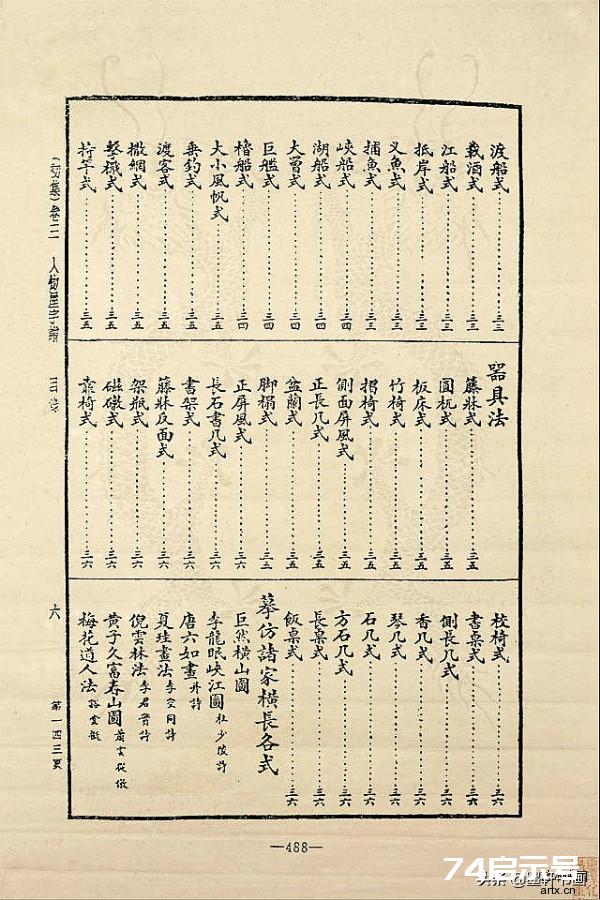 渡船式……三三
載酒式……三三
江船式……三三
抵岸式……三三
义魚式……三三
捕魚式……三三
峽船式……三四
湖船式……三四
大罾式……三四
巨艦式……三四
櫓船式……三四
大小風帆式……三五
垂釣式……三五
渡客式……三五
撒網式……三五
擊檝式……三五
持竿式……三五
器具法
藤牀式……三五
圓杌式……三五
板床式……三五
竹椅式……三五
摺椅式……三五
側面屏風式……三五
正長几式……三五
盆蘭式……三五
脚榻式……三五
正屏風式……三六
長石書几式……三六
書架式……三六
藤牀反面式……三六
架瓶式……三六
磁礅式……三六
靠椅式……三六
校椅式……三六
書桌式……三六
側長几式……三六
香几式……三六
琴几式……三六
石几式……三六
方石几式……三六
長桌式……三六
飯桌式……三六
摹仿諸家橫長各式
巨然橫山圖
李龍眠峽江圖 杜少陵詩
唐六如畫 并詩
夏珪畫法 李空同詩
倪雲林法 李君實詩
黃子久富春山圖 蕭雲從倣
梅花道人法
(初集)卷二 人物屋宇譜
六
第一四三要
—488—
74启示号
头条 @墨轩书画
artx.cn